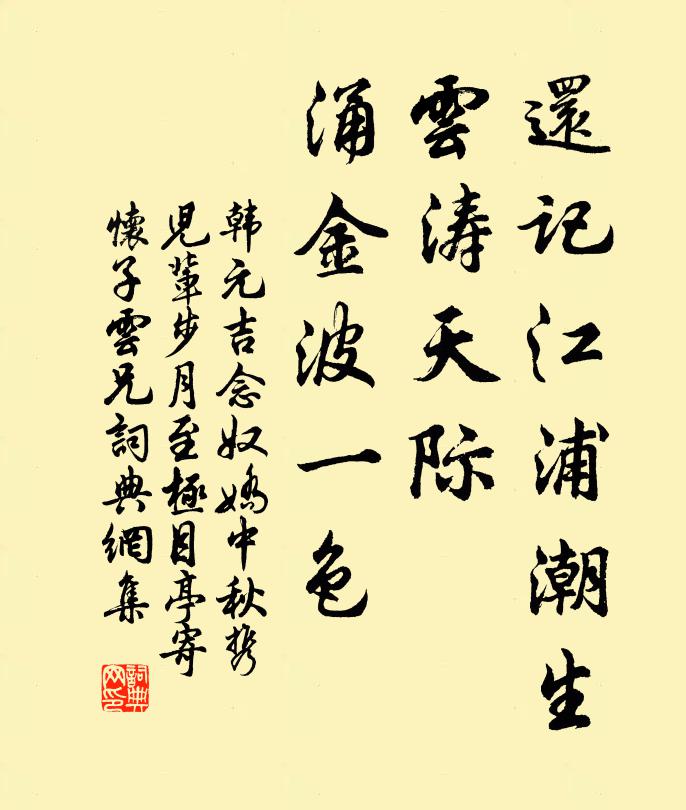 還記江浦潮生
雲涛天际
涌金波一色
韩元吉念奴嬌中秋携
児輩步月至極目亭寄
懷子雲兄詞典網集
詞典網印